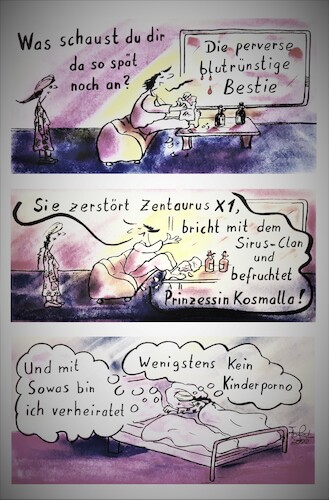 Was schaust du dir
da so spät
noch an?
Die perverse
blutrünstige
Bestie
Sie zerstört Zentaurus X1,
bricht mit dem
Sirus-Clan
und
befruchtet
Prinzessin Kosmalla!
Und mit
Sowas bin
ich verheiratet
Wenigstens Kein
Kinderporno